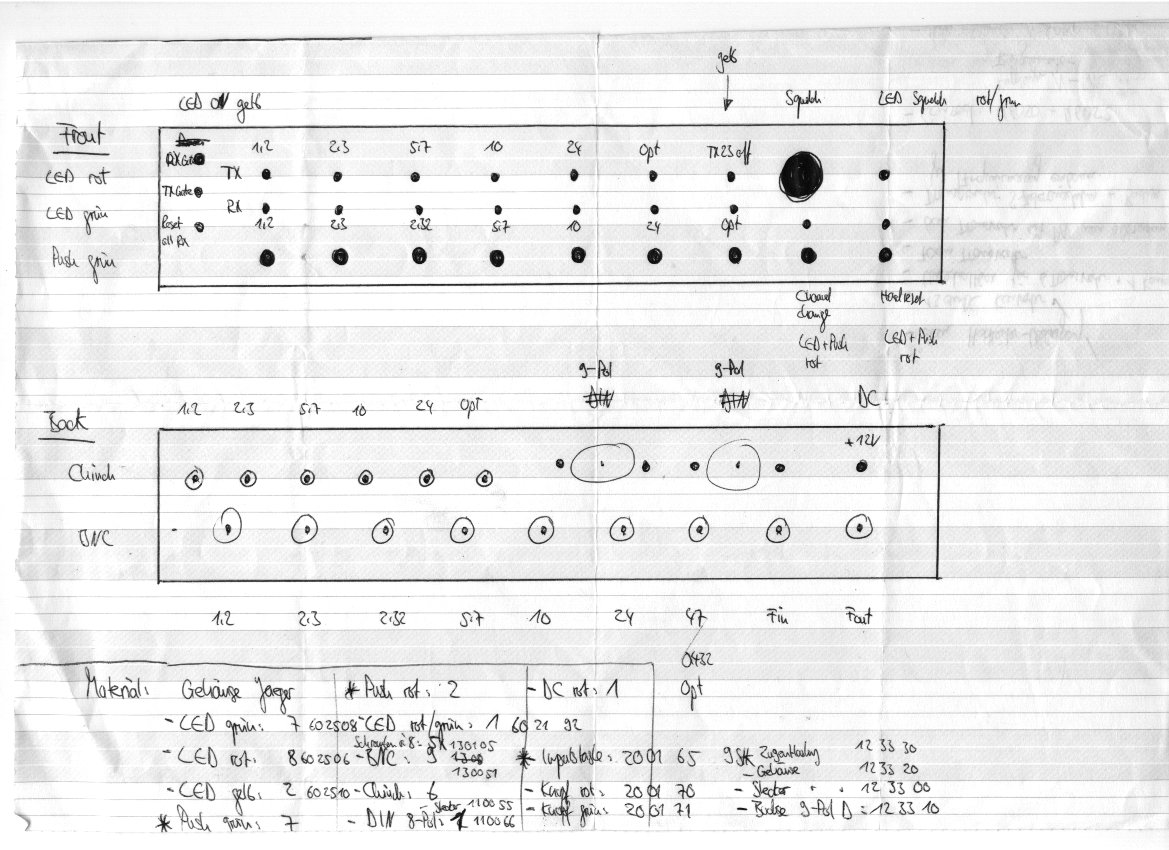 gelb
LED ON gelb Squelch LED Squelch rot/grün
Front
RX Gate 1,2 2,3 5,7 10 24 Opt TX 23 off
LED rot TX
TX Gate
LED grün RX
Reset all Rx 1,2 2,3 2,32 5,7 10 24 Opt
Push grün
Channel change Hardreset
LED+Push rot LED+Push rot
9-Pol 9-Pol
DIN DIN DC
1,2 2,3 5,7 10 24 Opt
Back
+12V
Chinch
BNC
1,2 2,3 2,32 5,7 10 24 47 Fin Fout
0432
Opt
Material: Gehäuse Jaeger * Push rot: 2 - DC rot: 1
- LED grün: 7 602508 - LED rot/grün: 1 60 21 92
- LED rot: 8 602506 - BNC: 9 130105 130051 * 20 01 65 9 St * Zugentlastung 12 33 30
- Gehäuse 12 33 20
- LED gelb: 2 602510 - Chinch: 6 - Knopf rot: 20 01 70 - Stecker " " 12 33 00
* Push grün: 7 - DIN 8-Pol: - Stecker 110055 110066 - Knopf grün: 20 01 71 - Buchse 9-Pol D = 12 33 10